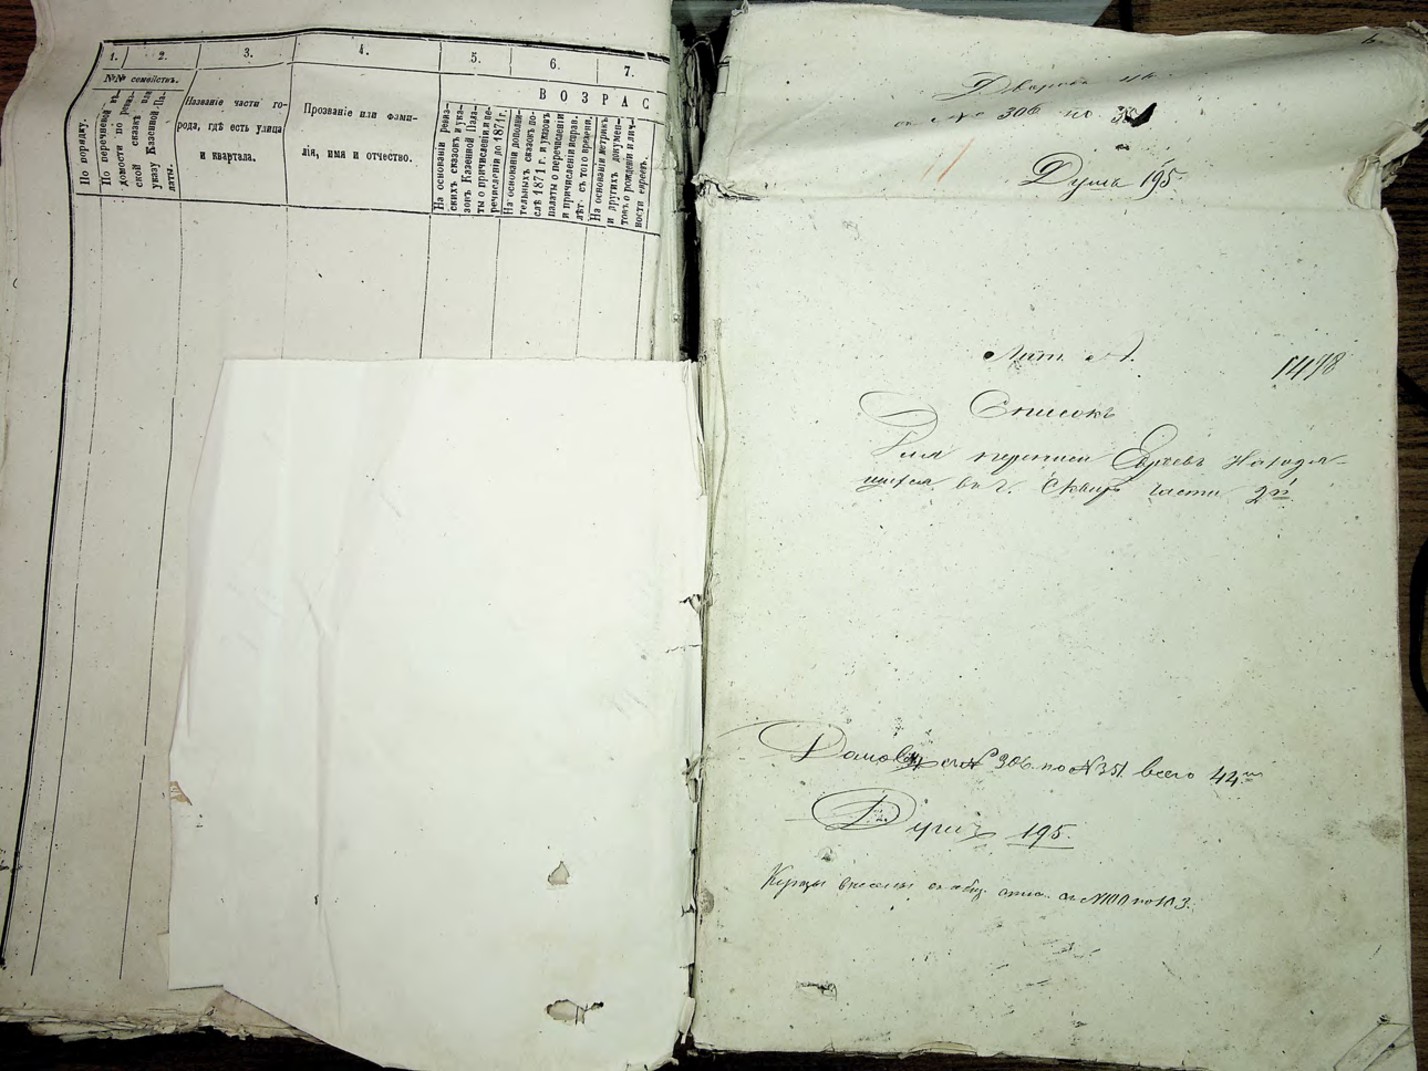 1. 2. 3. 4. 5. 6. 7.
№№ семействъ.
В О З Р А С
По порядку.
По перечневой вѣ-
домости по ревиз-
ской сказкѣ или
указу Казенной Па-
латы.
Названіе части го-
рода, гдѣ есть улица
и квартала.
Прозваніе или фами-
лія, имя и отчество.
На основаніи ревиз-
скихъ сказокъ и ука-
зовъ Казенной Пала-
ты о причисленіи и пе-
речисленіи до 1871 г.
На основаніи дополни-
тельныхъ сказокъ по-
слѣ 1871 г. и указовъ
палаты о перечисленіи
и причисленіи исправ.
лѣт. съ того времени.
На основаніи метрикъ
и другихъ докумен-
товъ о рожденіи и лич-
ности евреевъ.
Дворовъ 44
съ № 306 по 35
Душъ 195.
Лит. А.
1498
Списокъ
Для переписи Евреевъ Находя-
щихся въ г. Сквирѣ части 2й.
Домовъ съ № 306. по № 351. всего 44
Душъ 195.
внесены съ № 100 по 103.